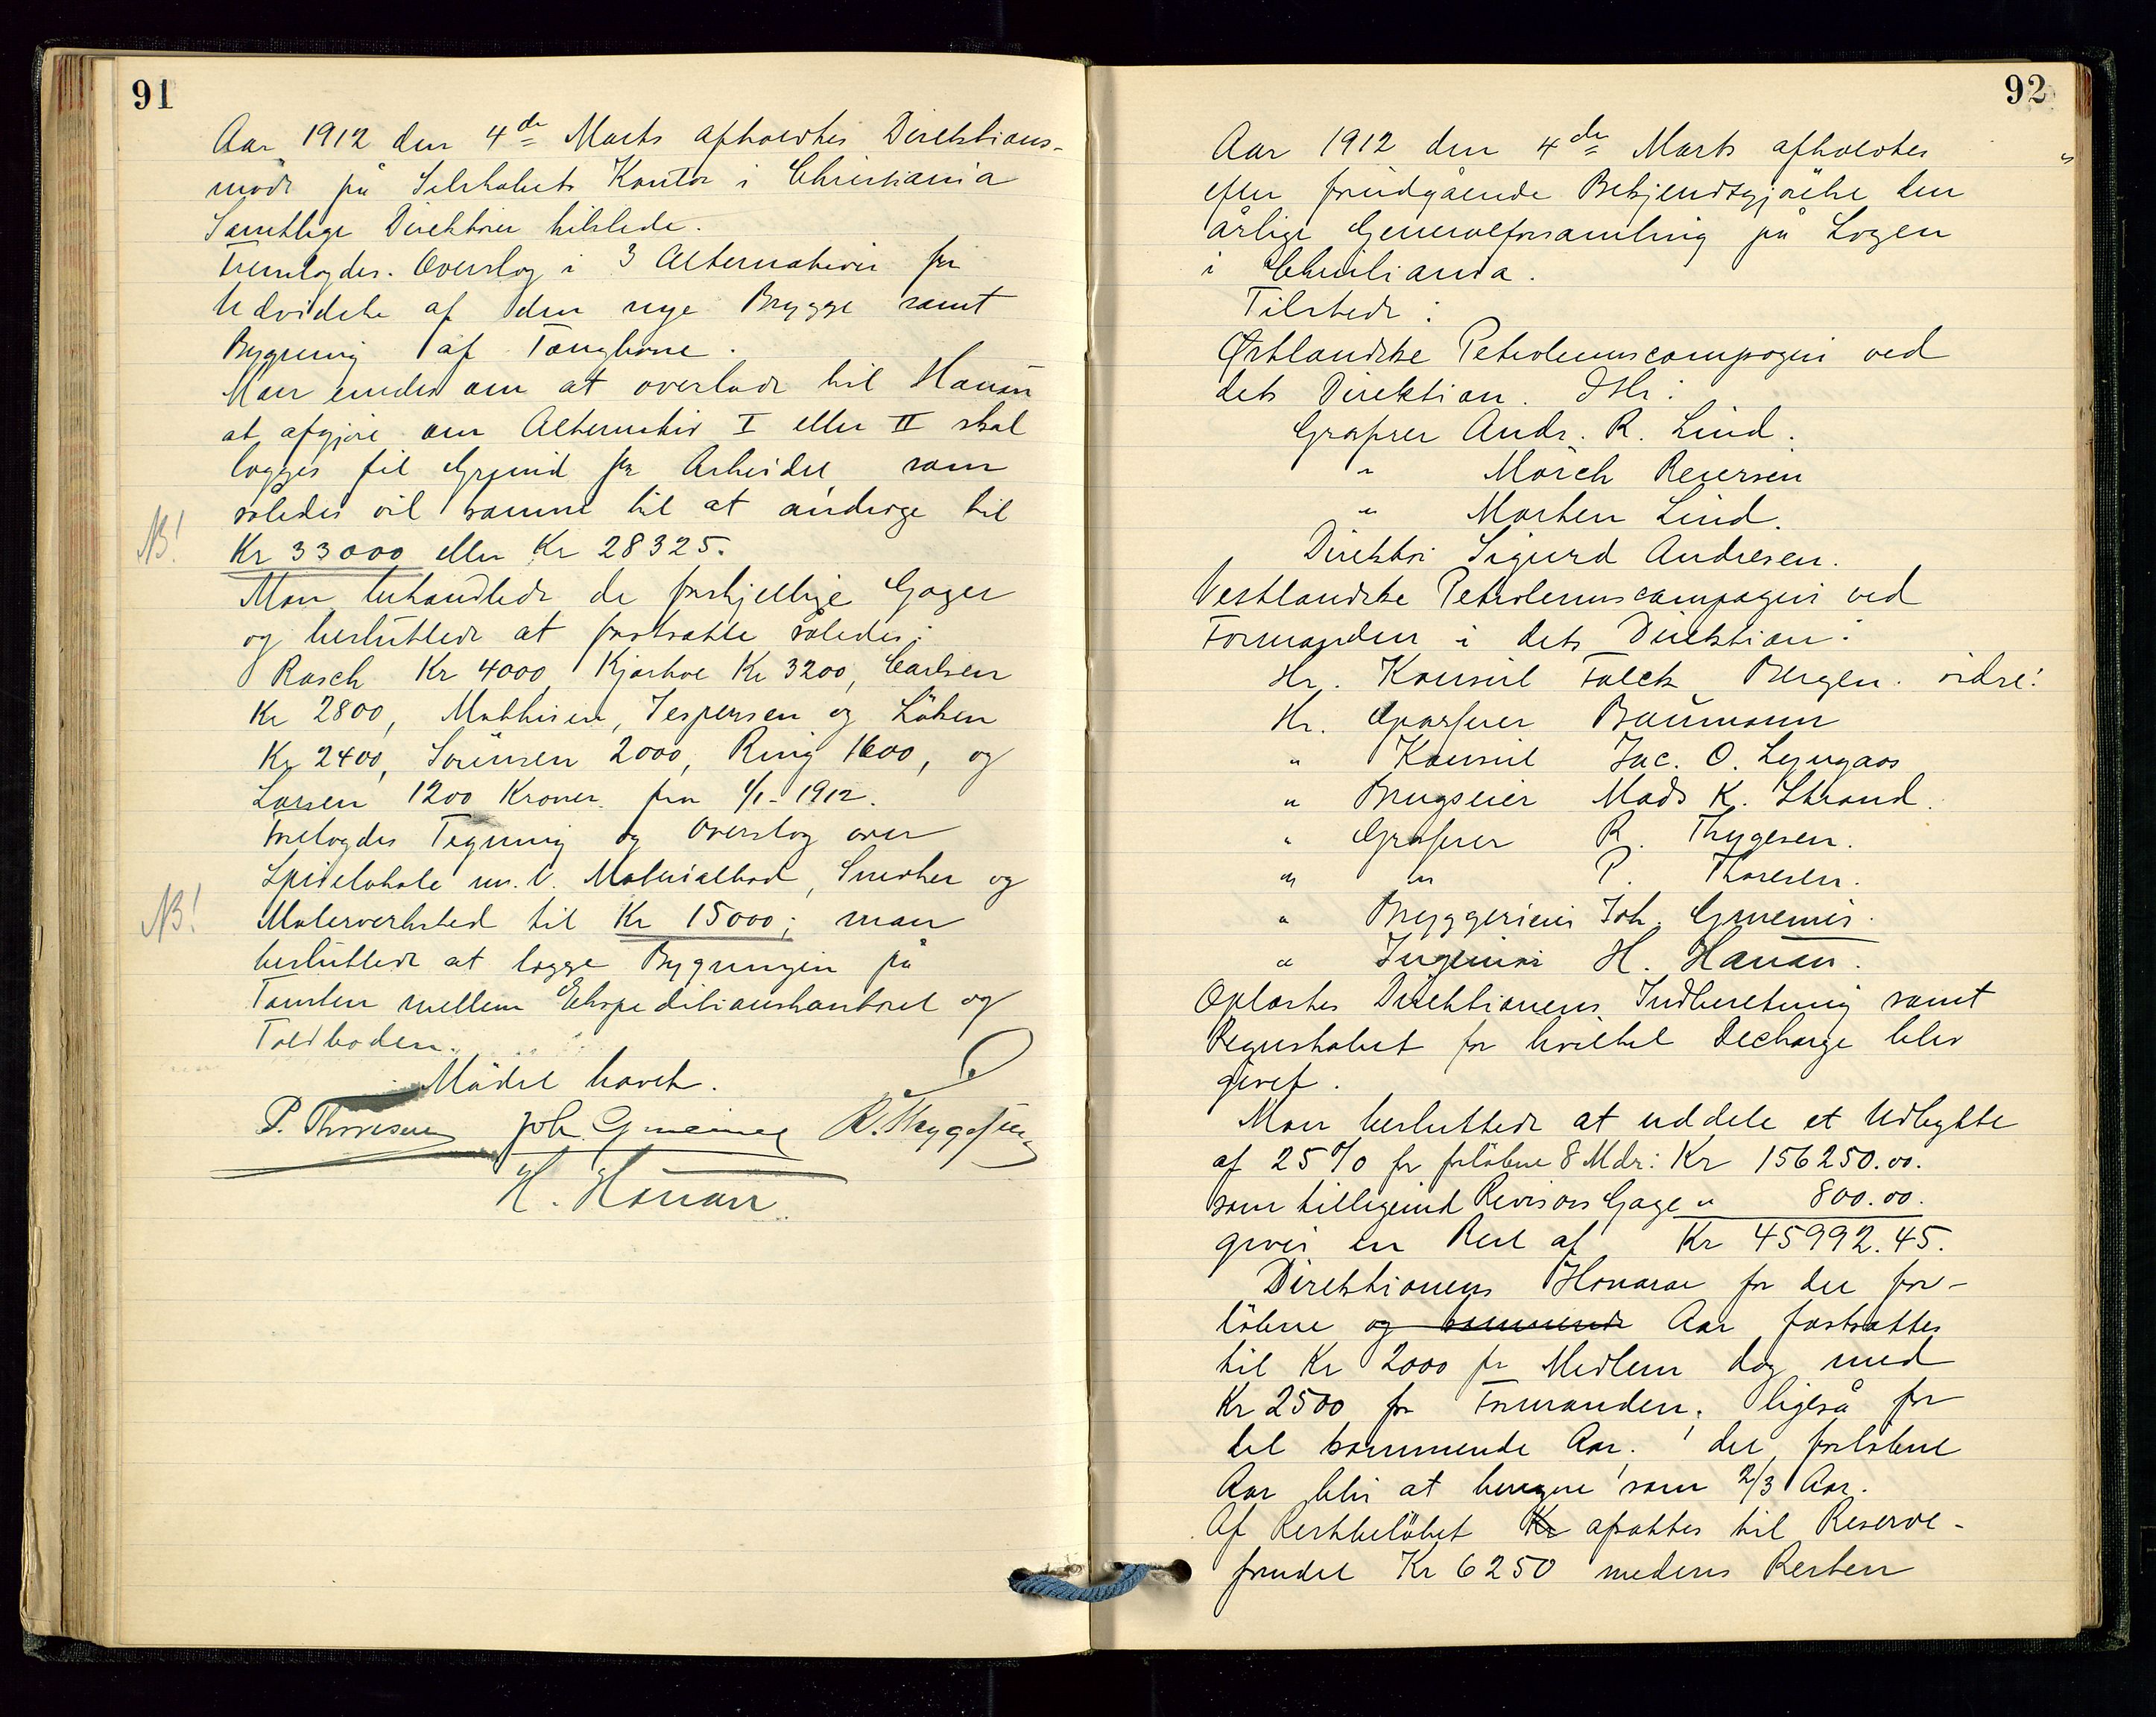 91
Aar 1912 den 4de Marts afholdtes Direktions-
møde på Selskabets Kontor i Christiania
Samtlige Direktører tilstede.
Fremlagdes Overslag i 3 Alternativer for
Udvidelse af den nye Brygge samt
Bygning af
Man enedes om at overlade til Houan
at afgjøre om Alternativ I eller II skal
lægges til Grund for Arbeidet, som
således vil komme til at andrage til
NB!
Kr 33000 eller Kr 28325.
Man behandlede de forskjellige Gager
og besluttede at fastsætte således:
Rasch Kr 4000, Kr 3200, Carlsen
Kr 2800, Mathisen, Jespersen og
Kr 2400, Sørensen 2000, Ring 1600, og
Larsen 1200 Kroner fra 1/1-1912.
Forelagdes Tegning og Overslag over
Spiselokale m. v. Materialbod, Smedie og
NB!
Malerverksted til Kr 15000; man
besluttede at lægge Bygningen på
Tomten mellem Ekspeditionskontoret og
Toldboden.
Mødet hævet.
P. Thoresen Joh. Gmeiner R. Thygesen
H. Houan
92
Aar 1912 den 4de Marts afholdtes
efter forudgående Bekjendtgjørelse den
årlige Generalforsamling på Logen
i Christiania.
Tilstede:
Østlandske Petroleumscompagni ved
dets Direktion. DHr:
Grosserer Andr. R. Lind.
" Mørch Reiersen
" Morten Lind.
Direktør Sigurd Andresen.
Vestlandske Petroleumscompagni ved
Formanden i dets Direktion:
Hr. Konsul Falck Bergen. vidre:
Hr. Grosserer Baumann
" Konsul Jac. O. Lyngaas
" Brugseier Mads K. Strand.
" Grosserer R. Thygesen.
" " P. Thoresen.
" Bryggerieier Joh. Gmeiner.
" Ingeniør H. Houan.
Oplæstes Direktionens Indberetning samt
Regnskabet for hvilket Decharge blev
givet.
Man besluttede at uddele et Udbytte
af 25% for forløbne 8 Mdr: Kr 156250.00.
som tilligemed Revisors Gage " 800.00.
giver en Rest af Kr 45992.45.
Direktionens Honorar for det for-
løbne og kommende Aar fastsattes
til Kr 2000 pr Medlem dog med
Kr 2500 for Formanden; ligeså for
det kommende Aar; det forløbne
Aar blir at beregne som 2/3 Aar.
Af Restbeløbet Kr afsattes til Reserve-
fondet Kr 6250 medens Resten